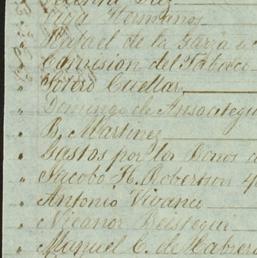 Vega Hermanos
Rafael de la Garza
Comision del Tabaco
Cuellar
Domingo de Ansoategui
B. Martinez
Gastos por los Bonos
Jacobo H. Robertson
Antonio Vivanco
Nicanor Beistegui
Manuel C. de